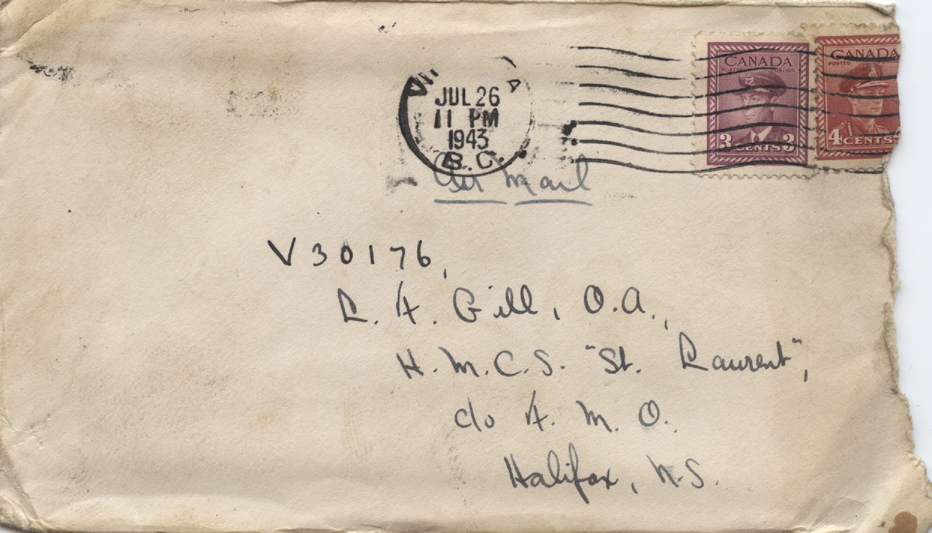 JUL 26
11 PM
1943
B.C.
CANADA
3 CENTS 3
CANADA
POSTES
4 CENTS
Air Mail
V30176,
L. F. Gill, O.A.,
H.M.C.S. "St. Laurent",
c/o F. M. O.
Halifax, N.S.